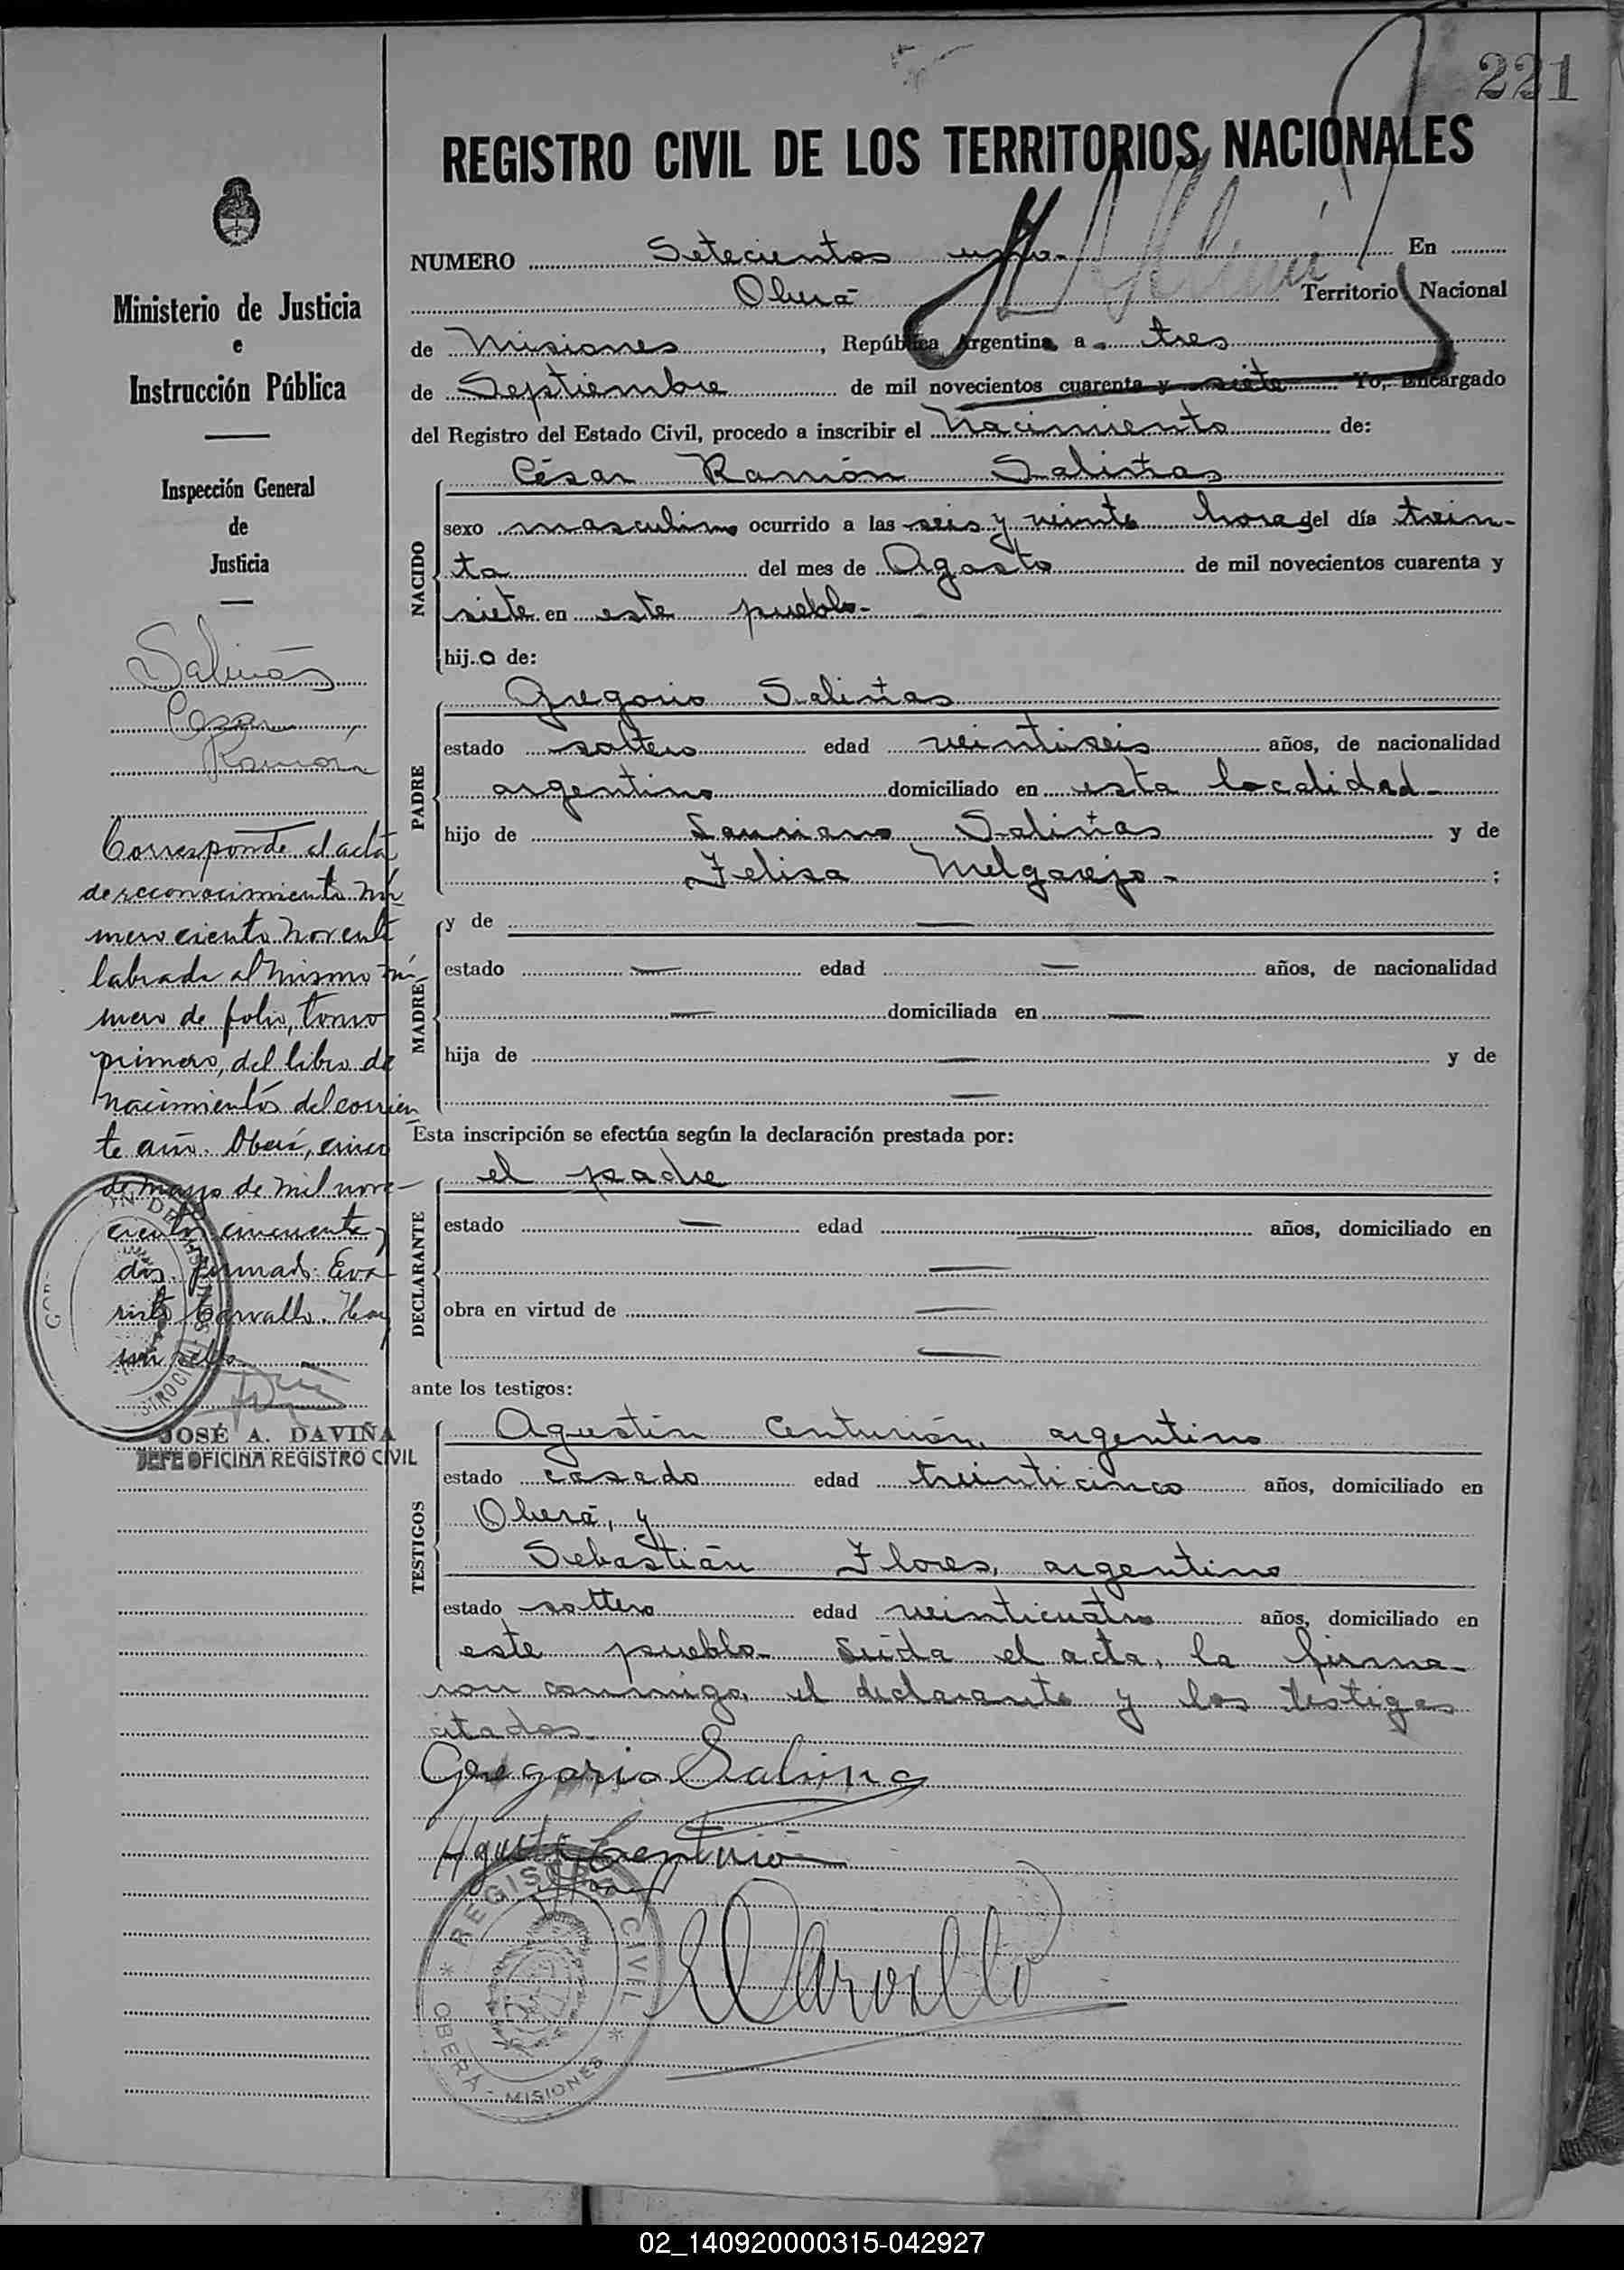 221
REGISTRO CIVIL DE LOS TERRITORIOS NACIONALES
NUMERO Setecientos uno.- En
Oberá Territorio Nacional
de Misiones, República Argentina, a tres
de Septiembre de mil novecientos cuarenta y siete Yo, Encargado
del Registro del Estado Civil, procedo a inscribir el Nacimiento de:
NACIDO
César Ramón Salinas
sexo masculino ocurrido a las seis y veinte horas del día trein-
ta del mes de Agosto de mil novecientos cuarenta y
siete en este pueblo-
hijo de:
PADRE
Gregorio Salinas
estado soltero edad veintiseis años, de nacionalidad
argentino domiciliado en esta localidad-
hijo de Salinas y de
Felisa Melgarejo- ;
MADRE
y de —
estado — edad — años, de nacionalidad
— domiciliada en —
hija de — y de
—
Esta inscripción se efectúa según la declaración prestada por:
DECLARANTE
el padre
estado — edad — años, domiciliado en
—
obra en virtud de —
—
ante los testigos:
TESTIGOS
Agustín Centurión, argentino
estado casado edad treinticinco años, domiciliado en
Oberá, y
Sebastián Flores, argentino
estado soltero edad veinticuatro años, domiciliado en
este pueblo- Leída el acta, la firma-
ron conmigo, el declarante y los testigos
citados-
Gregorio Salinas
Centurión
Carvallo
REGISTRO CIVIL
OBERÁ - MISIONES
Ministerio de Justicia
e
Instrucción Pública
Inspección General
de
Justicia
Salinas
Cesar
Ramon
Corresponde al acta
de reconocimiento nú
mero ciento noventa
labrada al mismo nú-
mero de folio, tomo
primero, del libro de
nacimientos del corrien
te año. Oberá, cinco
de mayo de mil nove-
cientos cincuenta y
dos. firmado: Eva
risto Carvallo. Hay
un sello.
JOSÉ A. DAVIÑA
JEFE OFICINA REGISTRO CIVIL
02_140920000315-042927